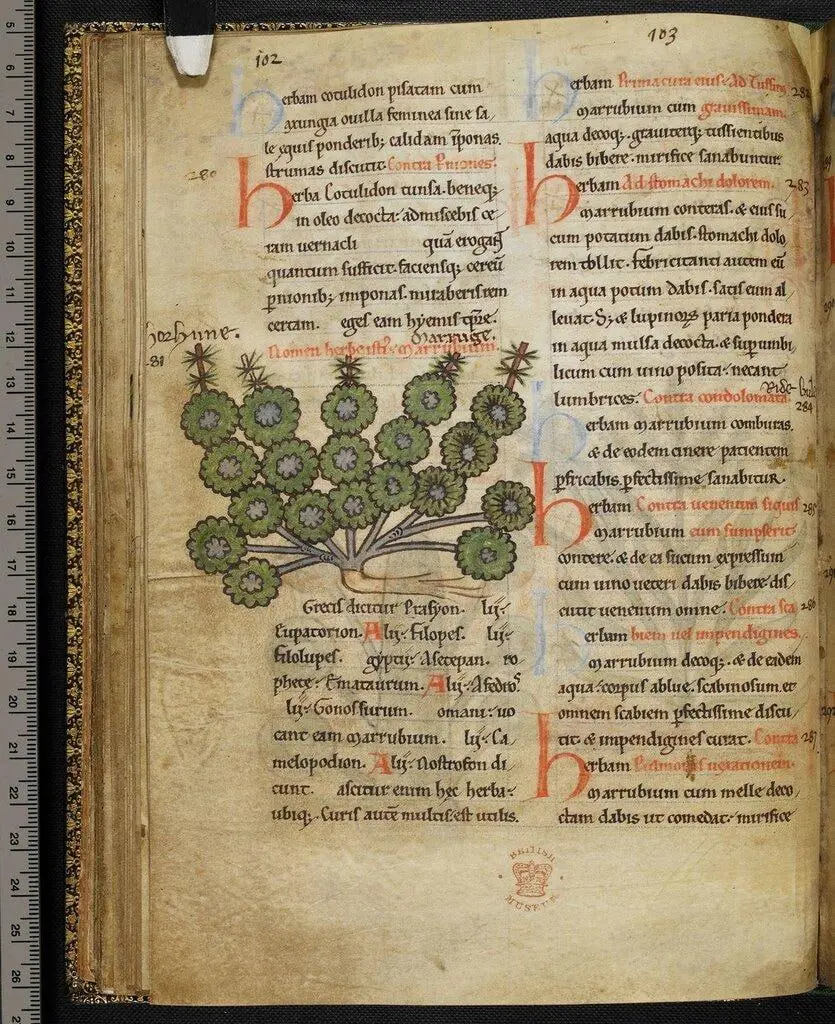 102
herbam cotulidon pisatam cum
axungia ouilla feminea sine sa/
le equis ponderib; calidam īponas.
strumas discutit. Contra Pniones.
280
herba Cotulidon tunsa. beneq;
in oleo decocta: admiscebis ce/
ram uernacli quā erogaſ
quantum sufficit. faciensq; cereū
pnionib; imponas. miraberis rem
certam. eges eam hyemis tp̄re.
horhune. Marruge.
Nomen herbe isti: Marrubium.
281
Grecis dicitur Prasyon. lij
Eupatorion. Alij Filopes. lij
Filolupes. gyptij Asterpan. ro
phete Emataurum. Alij Afedros
lij Gonossurum. omani uo
cant eam Marrubium. lij Ca/
melopodion. Alij Nostrofon di
cunt. ascitur enim hec herba
ubiq;. Curis autē multis est utilis.
103
herbam Prima cura eius. Ad Tussim
282
Marrubium cum grauissimam
aqua decoq;. grauiterq; tussientibus
dabis bibere. mirifice sanabuntur.
herbam Ad stomachi dolorem.
283
Marrubium conteras. & eius su
cum potatum dabis. stomachi dolo
rem tollit. Febricitanti autem eū
in aqua potum dabis. satis eum al/
leuat. S; & lupinos paria pondera
in aqua mulsa decocta. & sup umbi/
licum cum uino posita. necant
lumbrices. Contra condolomata.
284
herbam Marrubium comburas.
& de eodem cinere patientem
pfricabis. pfectissime sanabitur.
herbam Contra uenenum siquis
285
Marrubium eum sumpserit
contere. & de ea sucum expressum
cum uino ueteri dabis bibere. dis/
cutit uenenum omne. Contra sca
286
herbam biem uel inpendigines.
Marrubium decoq;. & de eadem
aqua corpus ablue. scabinosum. et
omnem scabiem pfectissime discu/
tit. & impendigines curat. Contra
287
herbam Pulmonis uexationem.
Marrubium cum melle deco/
ctam dabis ut comedat. mirifice
BRITISH
MUSEUM
5
6
7
8
9
10
11
12
13
14
15
16
17
18
19
20
21
22
23
24
25
26